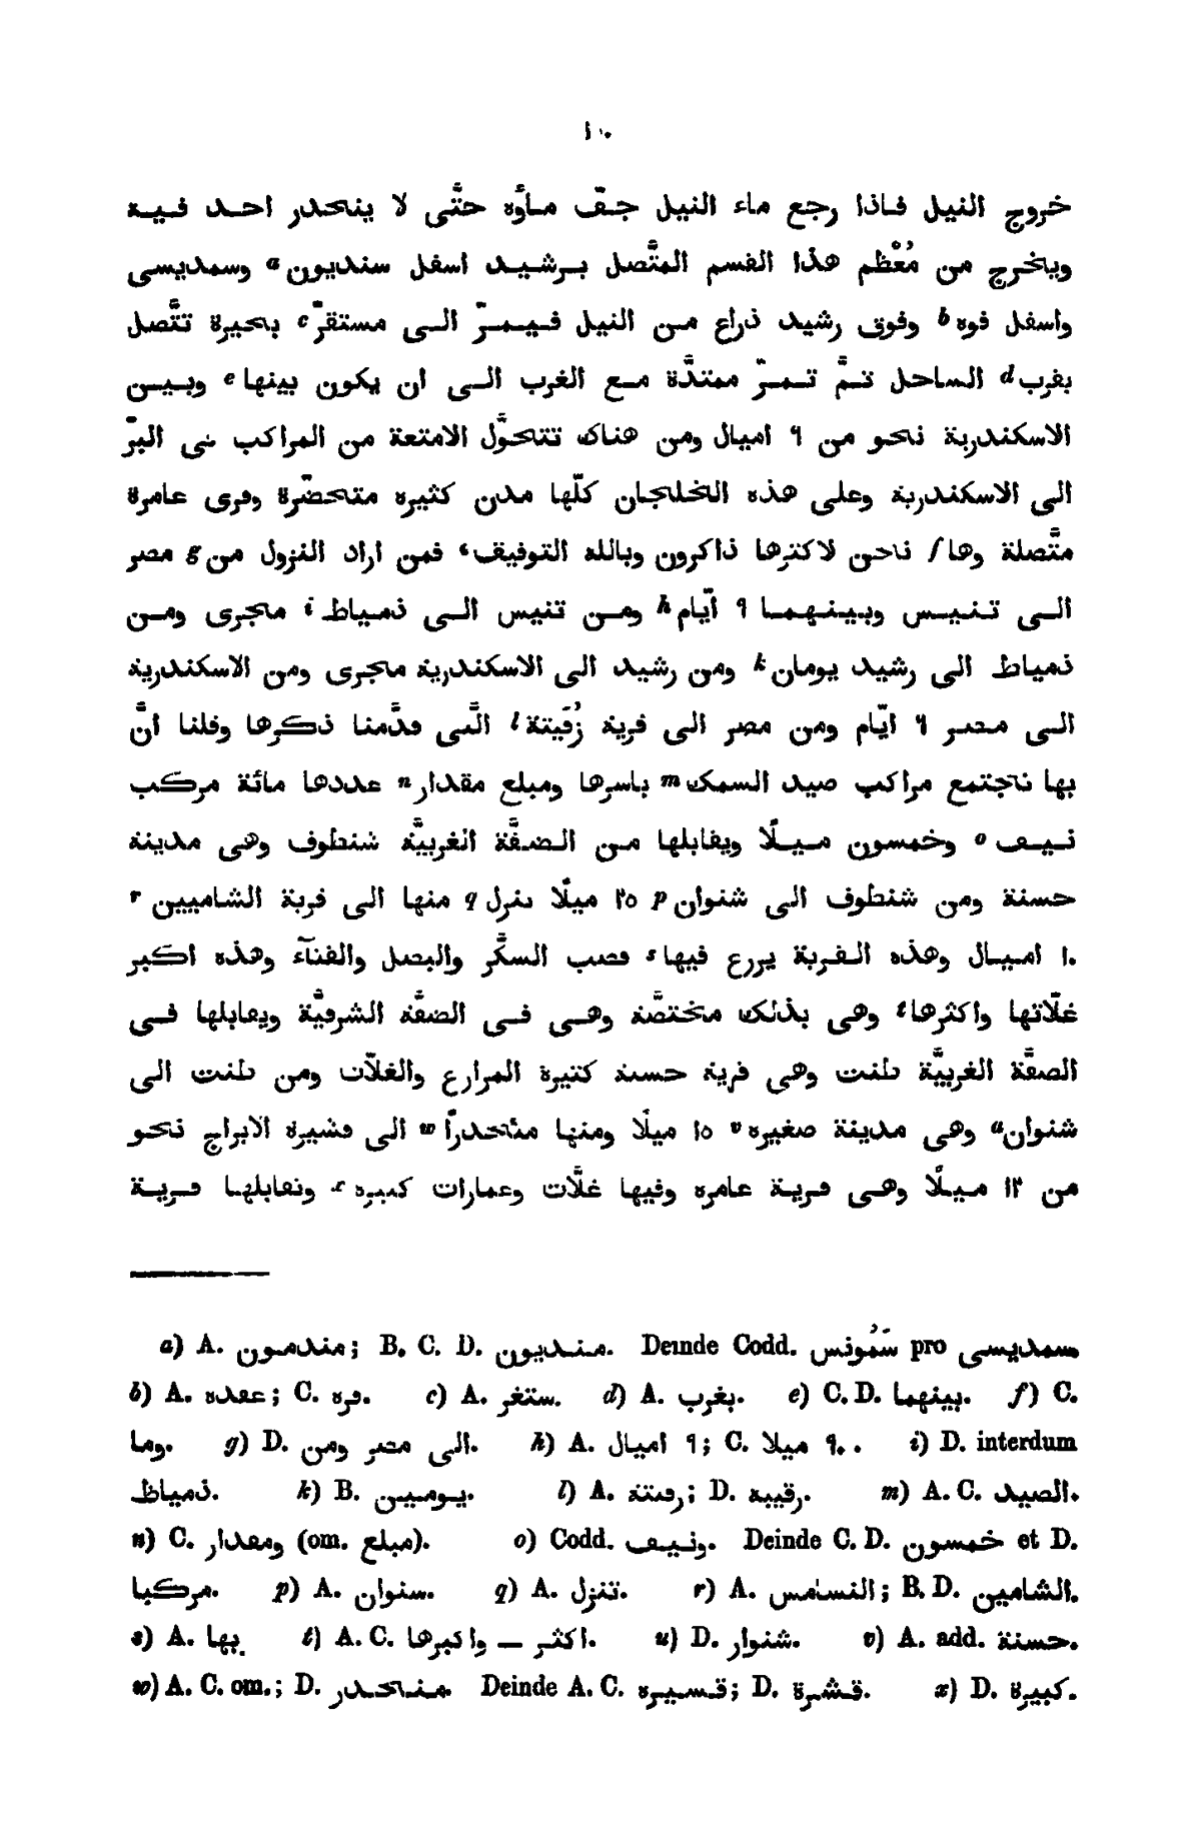 خروج النيل فاذا رجع ماء النيل جفّ مأوه حتّى لا ينحدر احد فيه
ويخرج من مُعْظم هذا القسم المتّصل برشيد اسفل سنديون a وسمديسى
واسفل فوه b وفوق رشيد ذراع من النيل فيمرّ الى مستقرّ c بحيرة تتّصل
بقرب d الساحل ثمّ تمرّ ممتدّة مع الغرب الى ان يكون بينها e وبين
الاسكندرية نحو من ٦ اميال ومن هناك تتحوّل الامتعة من المراكب فى البرّ
الى الاسكندرية وعلى هذه الخلجان كلّها مدن كثيرة متحضّرة وقرى عامرة
متّصلة وها f نحن لاكثرها ذاكرون وبالله التوفيق، فمن اراد النزول من g مصر
الى تنيس وبينهما ٩ ايّام h ومن تنيس الى ذمياط i مجرى ومن
ذمياط الى رشيد يومان k ومن رشيد الى الاسكندرية مجرى ومن الاسكندرية
الى مصر ٦ ايّام ومن مصر الى قرية زُفَيتة l الّتى قدّمنا ذكرها وقلنا انّ
بها تجتمع مراكب صيد السمك m باسرها ومبلغ مقدار n عددها مائة مركب
نيف o وخمسون ميلًا ويقابلها من الضفّة الغربيّة شنطوف وهى مدينة
حسنة ومن شنطوف الى شنوان p ٢٥ ميلًا ننزل q منها الى قرية الشاميين r
١٠ اميال وهذه القرية يزرع فيها s قصب السكّر والبصل والقثآء وهذه اكبر
غلّاتها واكثرها t وهى بذلك مختصّة وهى فى الضفّة الشرقيّة ويقابلها فى
الضفّة الغربيّة طنت وهى قرية حسنة كثيرة المزارع والغلّات ومن طنت الى
شنوان u وهى مدينة صغيرة v ١٥ ميلًا ومنها منحدراً w الى قشيرة الابراج نحو
من ١٢ ميلًا وهى قرية عامرة وفيها غلّات وعمارات كثيرة x وتقابلها قرية
a) A. مندمون; B. C. D. منديون. Deinde Codd. سَمُونس pro سمديسى
b) A. عفده; C. قره. c) A. ستغر. d) A. بغرب. e) C. D. بينهما. f) C.
وما. g) D. الى مصر ومن. h) A. ٩ اميال; C. ٩٠٠ ميلا. i) D. interdum
ذمياط. k) B. يومين. l) A. رفتتة; D. رقيبة. m) A. C. الصيد.
n) C. ومقدار (om. مبلغ). o) Codd. ونيف. Deinde C. D. خمسون et D.
مركبا. p) A. سنوان. q) A. تنزل. r) A. النسامس; B. D. الشامين.
s) A. بها. t) A. C. اكثر — واكبرها. u) D. شنوار. v) A. add. حسنة.
w) A. C. om.; D. منحدر. Deinde A. C. قسيره; D. قشرة. x) D. كبيرة.